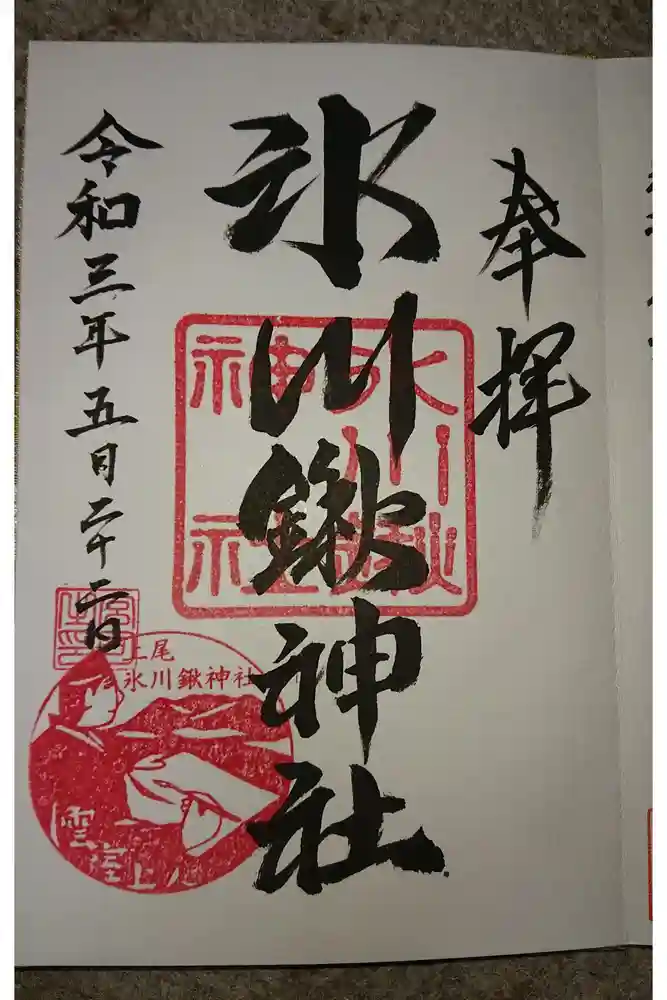 奉拝
氷川鍬神社
令和三年五月二十二日
氷川
鍬神
社
上尾
氷川鍬神社